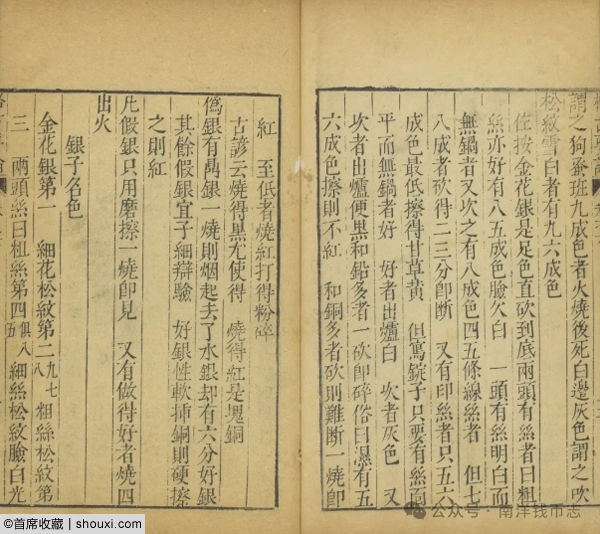 謂之狗蚤班九成色者火燒後死白邊灰色謂之吹
松紋雪白者有九六成色
佐按金花銀是足色直砍到底兩頭有絲者曰粗
絲亦好有八五成色臉欠白 一頭有絲明白而
無鍋者又次之有八成色四五條線絲者 但七
八成者砍得二三分即斷 又有印絲者只五六
成色最低擦得甘草黃 但寫錠子只要有絲面
平而無鍋者好 好者出爐白 次者灰色 又
次者出爐便黑和鉛多者一砍即碎俗曰瀑有五
六成色擦則不紅 和銅多者砍則難斷一燒即
紅 至低者燒紅打得粉碎
古諺云燒得黑尤使得 燒得紅是塊銅
僞銀有鬲銀一燒則烟起去了水銀却有六分好銀
其餘假銀宜子細辯驗 好銀性軟插銅則硬擦
之則紅
凡假銀只用磨擦一燒即見 又有做得好者燒四
出火
銀子名色
金花銀第一 細花松紋第二九七八 粗絲松紋第
三 兩頭絲曰粗絲第四俱八五 細絲松紋臉白光
©首席收藏 | shouxi.com
公众号 · 南洋钱币志